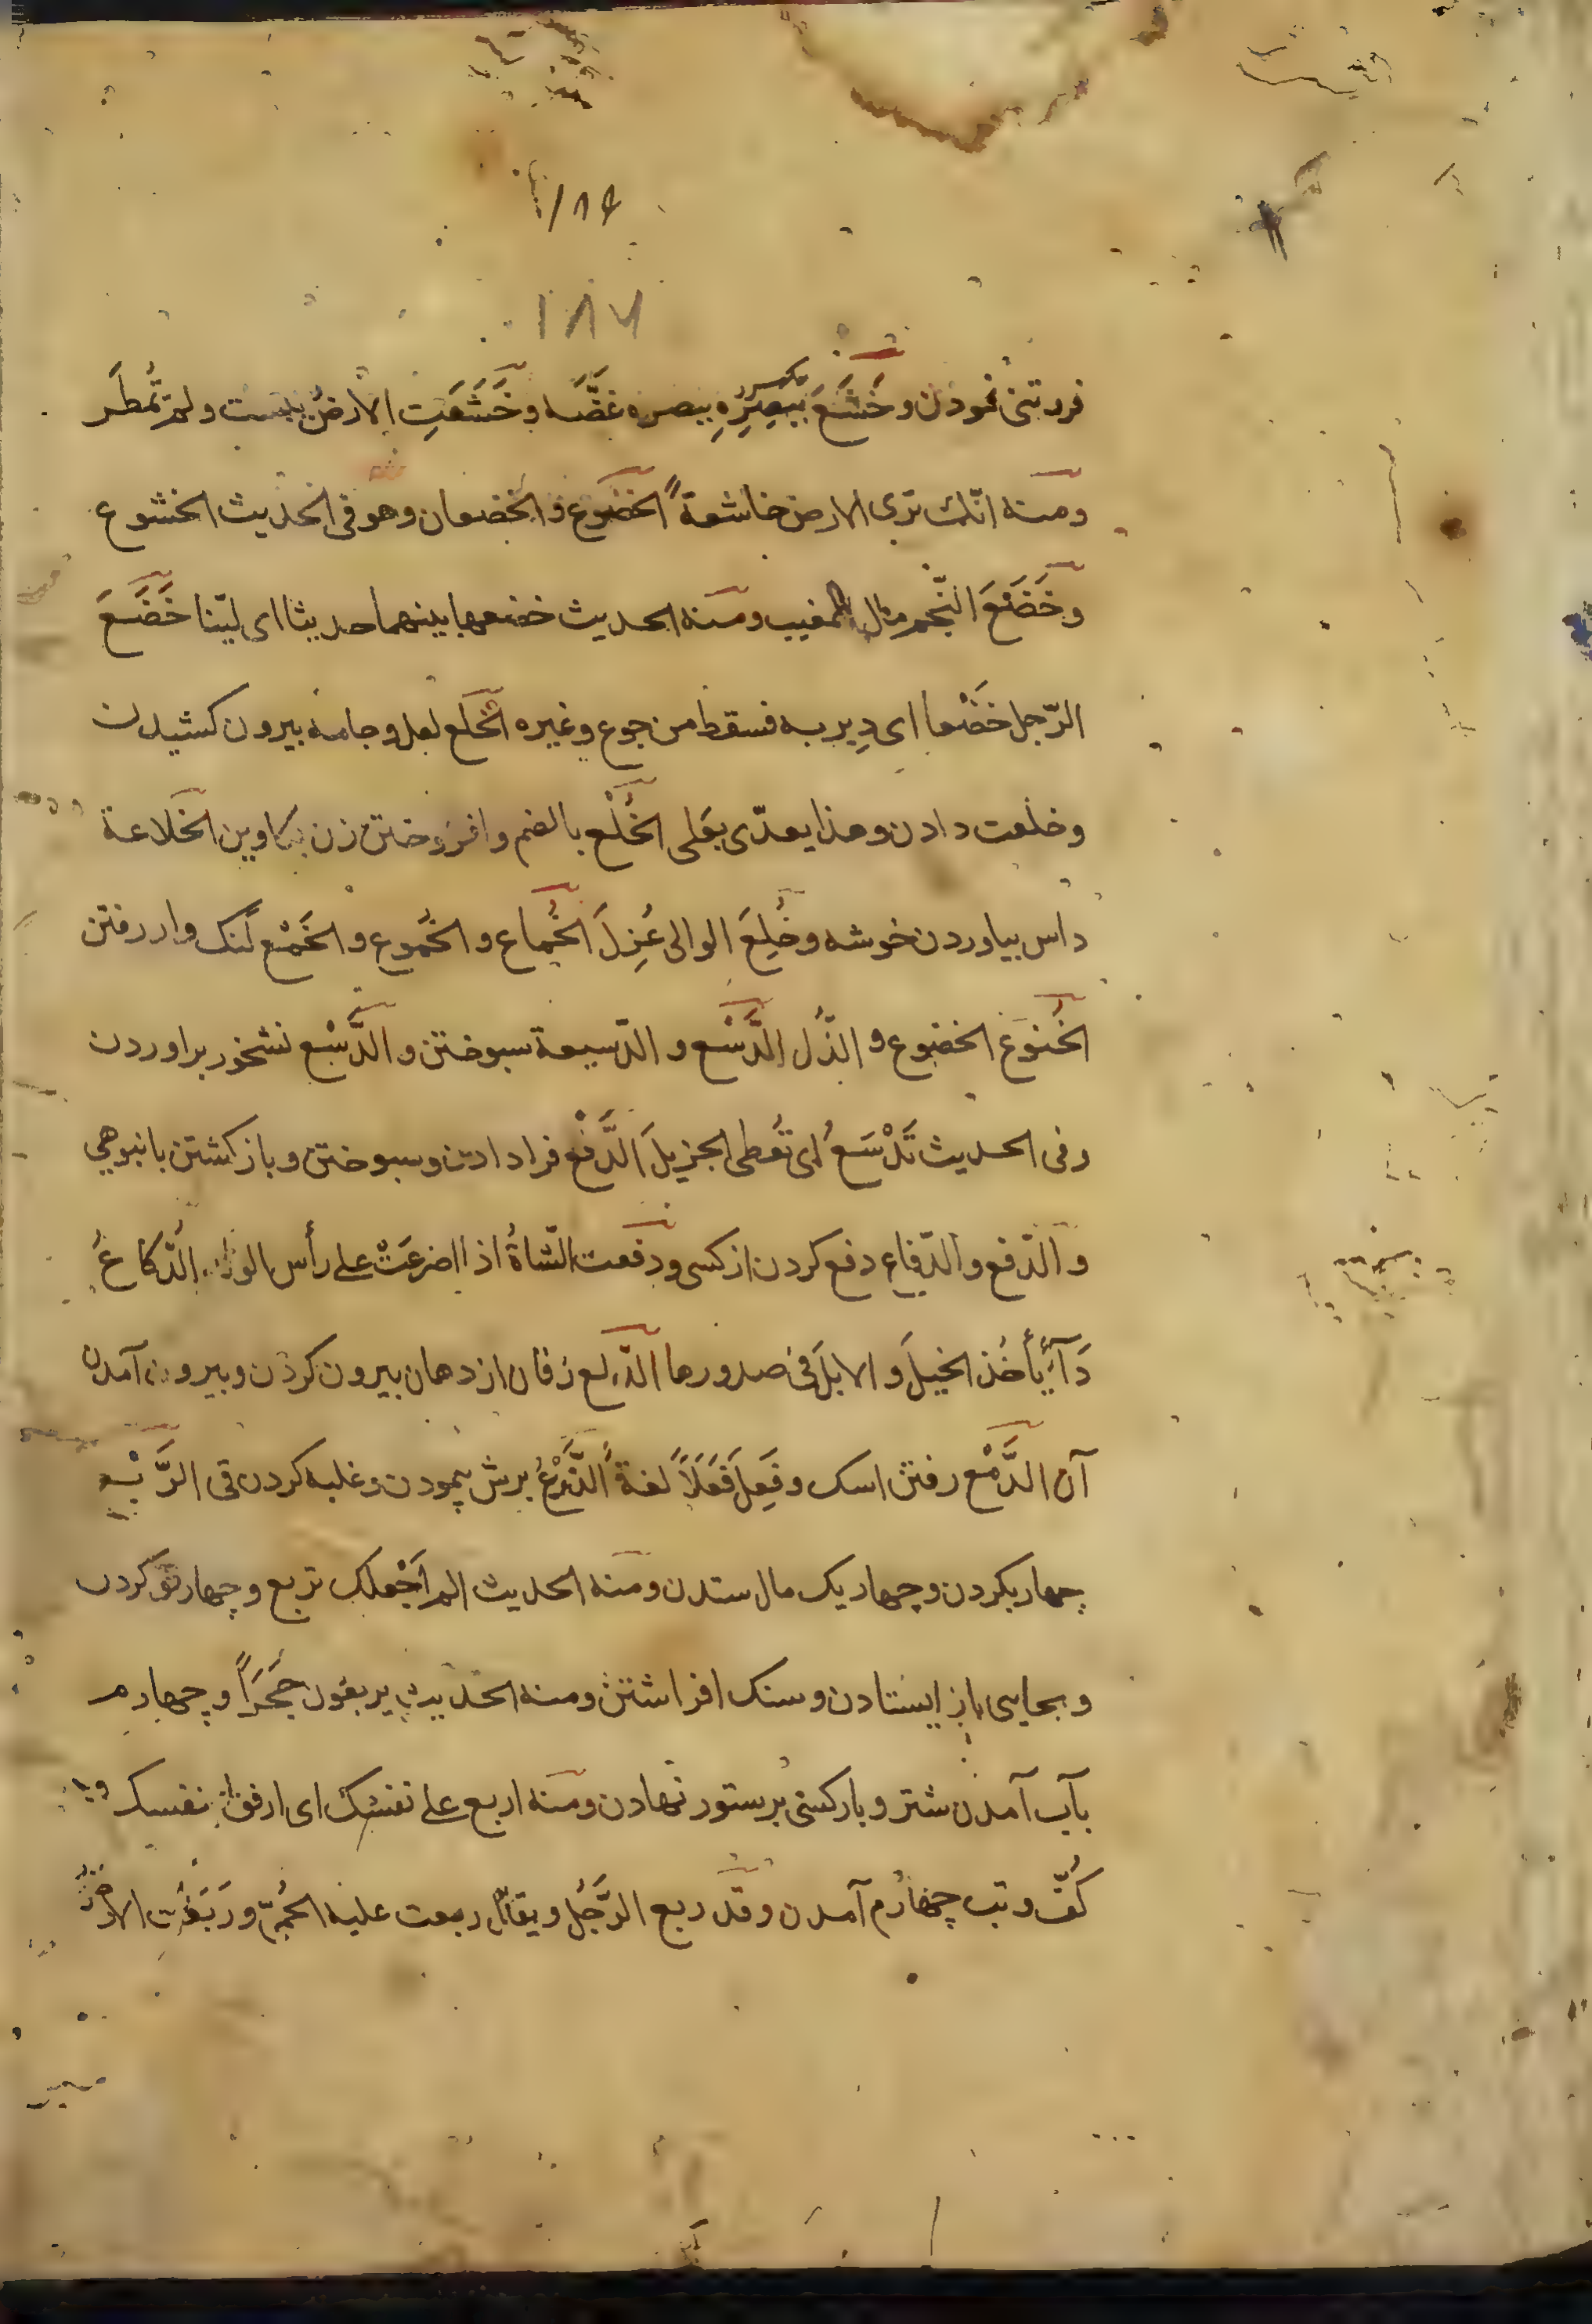 ۱۸۶
۱۸۷
فروتنی نمودن و خَشَعَ ببصره غَضَّه و خَشَعَتِ الارضُ یبست و لم تُمطَر
ومنه انّك ترى الارض خاشعةً الخضُوع و الخضعان وهو فى الحديث الخشوع
وخَضَعَ النّجم مال للمغيب ومنه الحديث خضعها بينهما حديثا اى ليّنا خَضَعَ
الرّجل خَضْعا اى دِير به فسقط من جوع وغيره الخَلع نعل و جامه بیرون کشیدن
و خلعت دادن و هذا یعدّی بعلی الخُلْع بالضم وافروختن زن بکاوین الخلاعة
داس بیاوردن خوشه و خُلِعَ الوالی عُزِلَ الخُماع و الخُموع و الخَمْع لنگ وار رفتن
الخُنوع الخضوع و الذّل الدَّسْع و الدّسیعة سبوختن و الدَّسْع نشخور براوردن
وفى الحديث تَدْسَعُ اى تُعطى الجزیلَ الدَّفْع فرا دادن و سبوختن و باز کشتن بانبوهی
و الدّفع و الدّفاع دفع کردن از کسی و دفعت الشاةُ اذا اضرعَتْ على رأس الولد الدّکاعُ
دَآءٌ یأخُذ الخیلَ و الابلَ فى صدورها الدّلع زفان از دهان بیرون کردن و بیرون آمدن
آن الدَّمْع رفتن اسک و فَعِلَ فَعَلاً لغةً الذَّرْعُ برش پیمودن و غلبه کردن قی الرَّبْع
چهار یکردن و چهار یک مال ستدن ومنه الحديث الم اَجْعلك تربع و چهار تو کردن
و بجایی باز ایستادن و سنک افراشتن ومنه الحديث یربعون حَجَراً و چهارم
بآب آمدن شتر و بارکشی برستور نهادن ومنه اربع على نفسك اى ارفق نفسك و
كُفّ و تب چهارم آمدن وقد ربع الرَّجُل ويقال ربعت عليه الحُمّى و رَبَعُت الارضُ